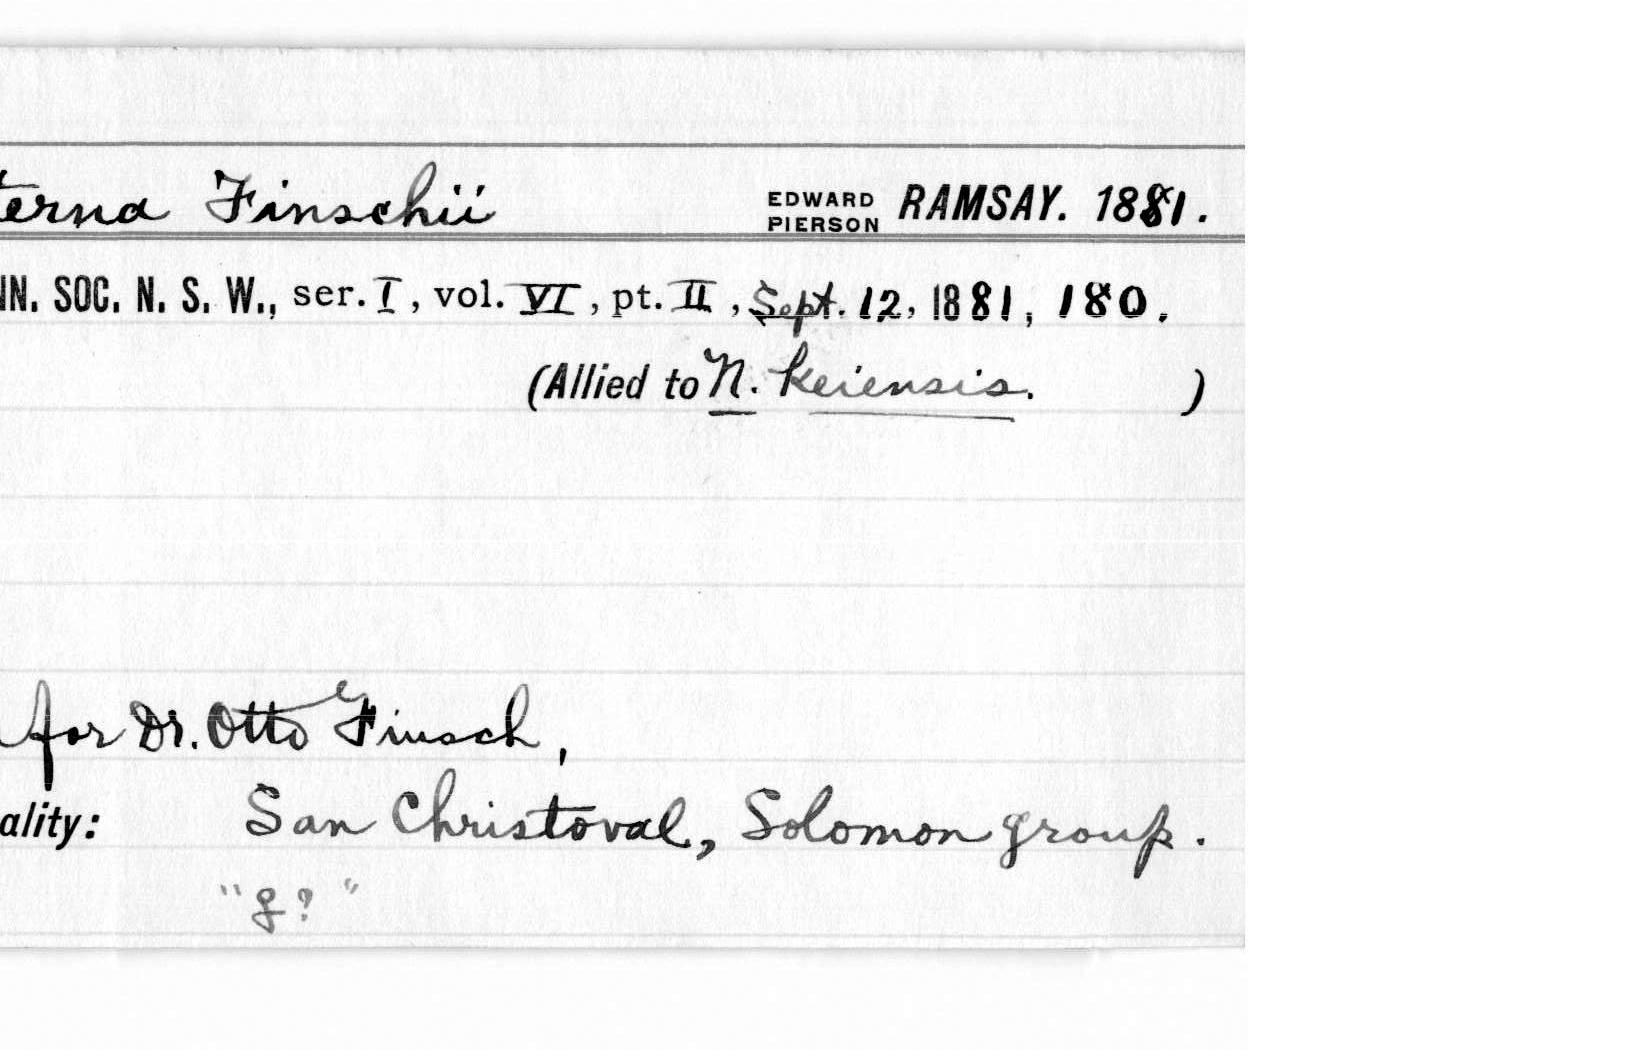 terna Finschii EDWARD PIERSON RAMSAY. 1881.
IN. SOC. N. S. W., ser. I, vol. VI, pt. II, Sept. 12, 1881, 180.
(Allied to N. keiensis. )
for Dr. Otto Finsch,
ality: San Christoval, Solomon group.
"g? "